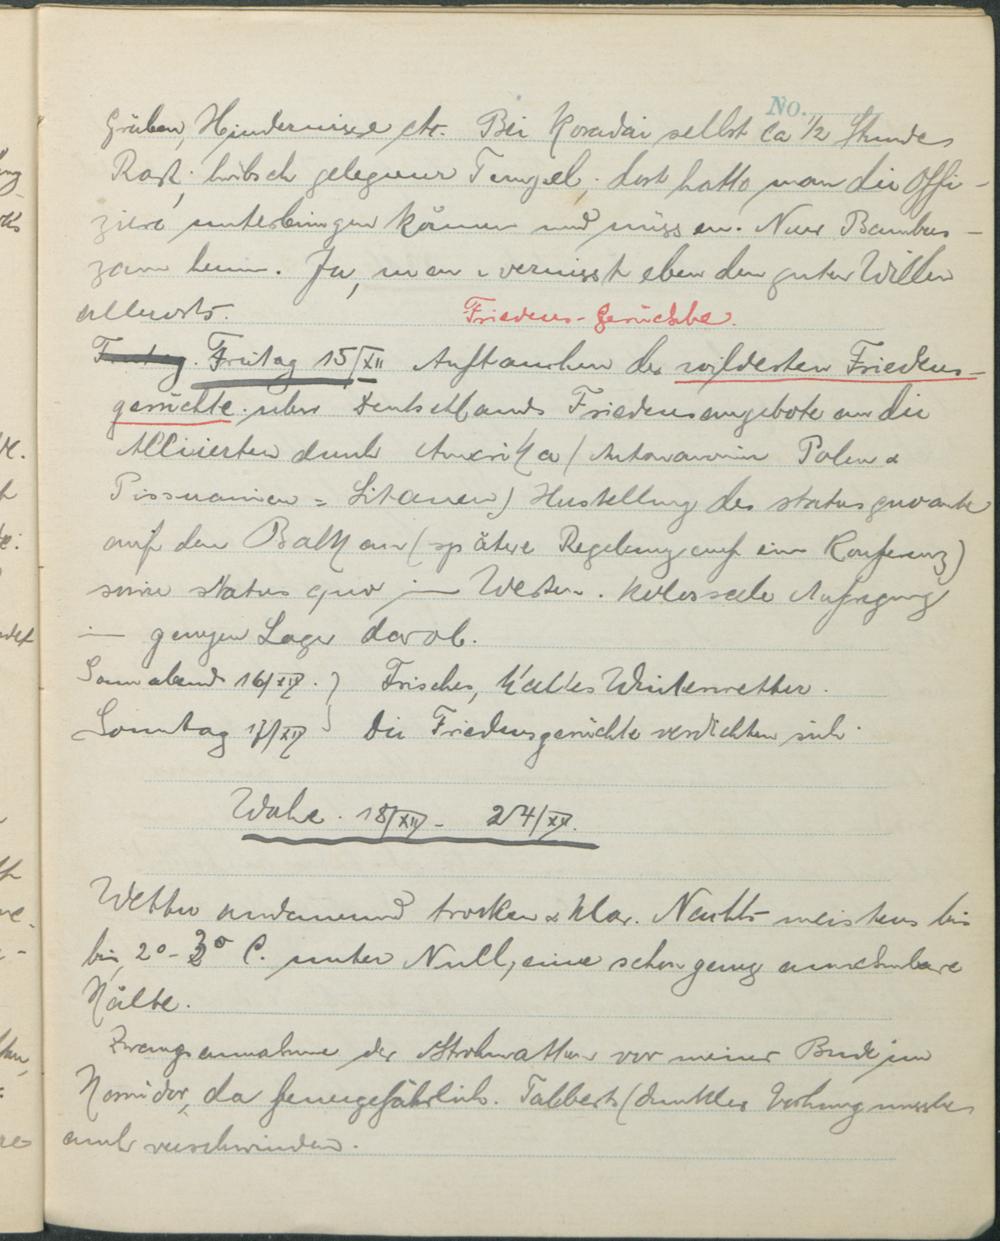 No.
Gräben, Hindernisse etc. Bei Koradai selbst ca 1/2 Stunde
Rast. hübsch gelegener Tempel, dort hatte man die Offi-
ziere unterbringen können und müssen. Nur Bambus-
zaun herum. Ja, man vermisst eben den guten Willen
allerorts.
Friedens-Gerüchte.
Freitag. Freitag 15/XII Auftauchen der wildesten Friedens-
gerüchte über Deutschlands Friedensangebote an die
Alliierten durch Amerika (Autonomie Polen &
= Litauen) Herstellung des status quo ante
auf dem Balkan (spätere Regelung auf einer Konferenz)
sowie status quo im Westen. Kolossale Aufregung
im ganzen Lager darob.
Sonnabend 16/XII. } Frisches, kaltes Winterwetter.
Sonntag 17/XII } Die Friedensgerüchte verdichten sich.
Woche. 18/XII - 24/XII.
Wetter andauernd trocken & klar. Nachts meistens bis
bis 2°-3° C. unter Null, eine schon genug annehmbare
Kälte.
Zwangsannahme der Strohmatten vor meiner Bude im
Korridor, da feuergefährlich. Talberts (dunkler Vorhang musste
auch verschwinden.